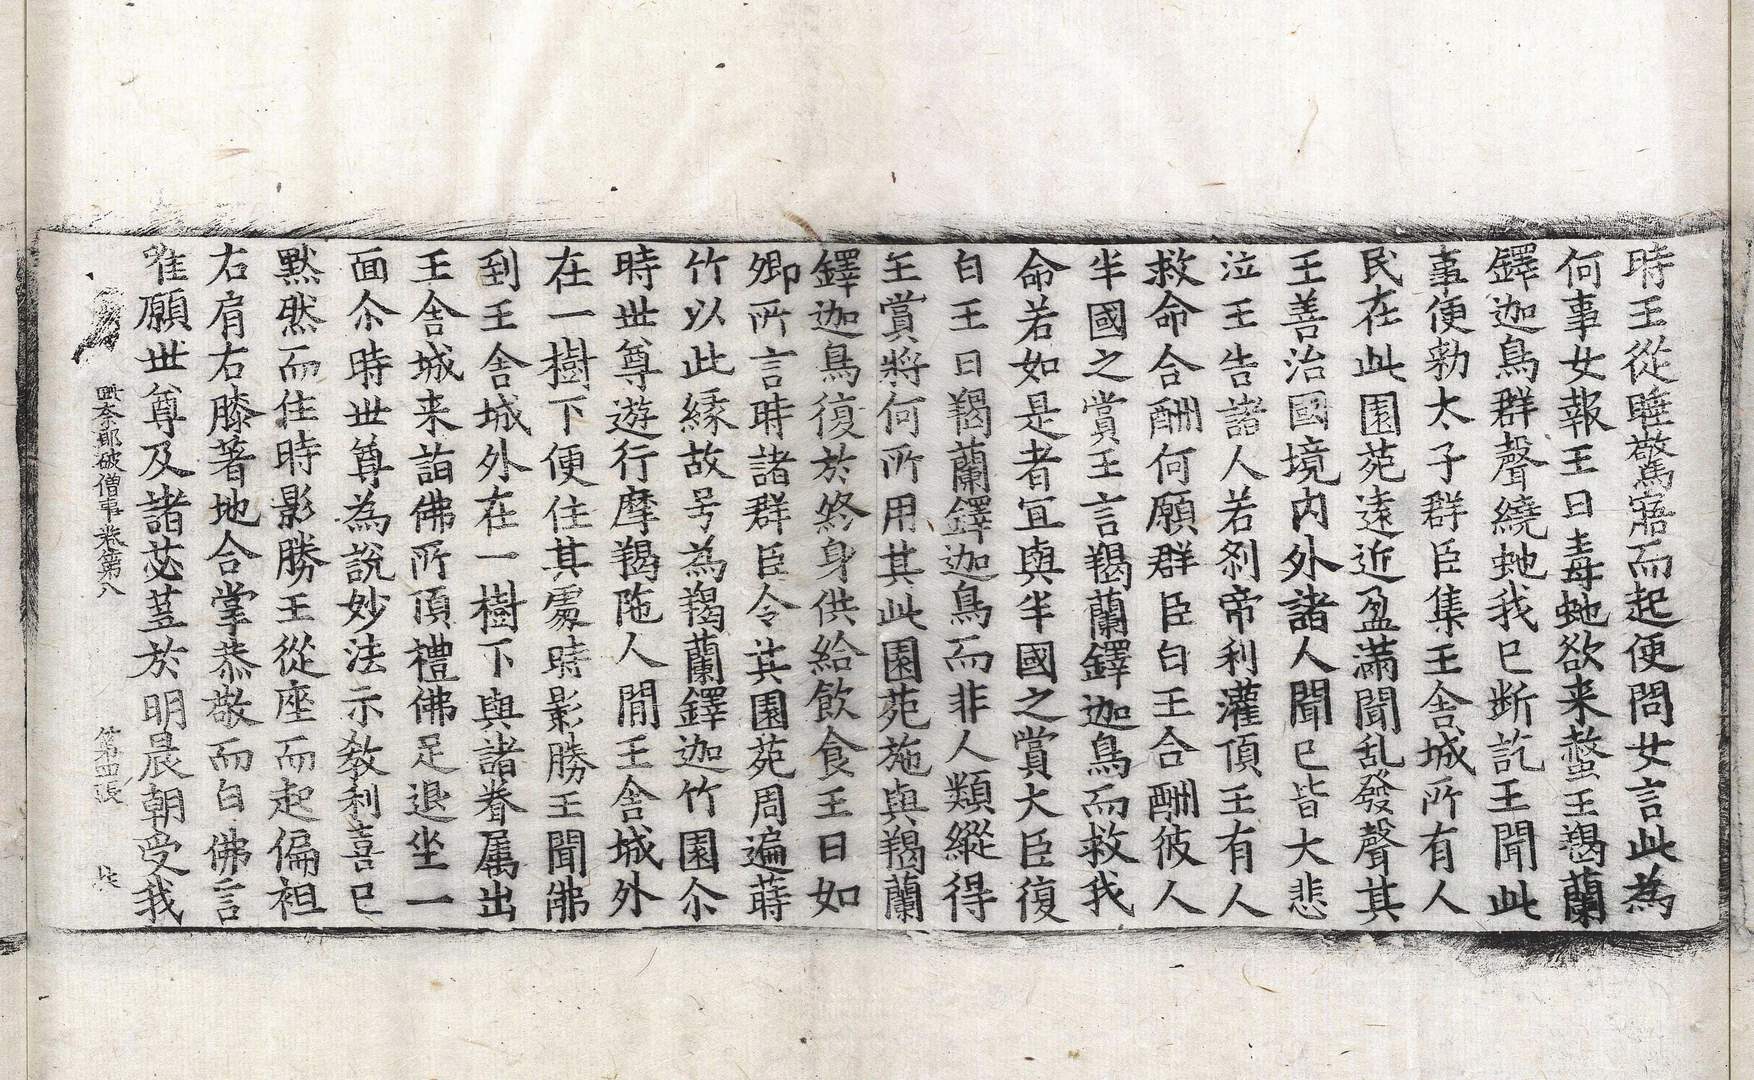 時王從睡驚寤而起便問女言此為
何事女報王曰毒虵欲来螫王羯蘭
鐸迦鳥群聲繞虵我已断訖王聞此
事便勑太子群臣集王舍城所有人
民在此園苑遠近盈滿聞乱發聲其
王善治國境内外諸人聞已皆大悲
泣王告諸人若刹帝利灌頂王有人
救命合酬何願群臣白王合酬彼人
半國之賞王言羯蘭鐸迦鳥而救我
命若如是者宜與半國之賞大臣復
白王曰羯蘭鐸迦鳥而非人類縱得
王賞將何所用其此園苑施與羯蘭
鐸迦鳥復於終身供給飲食王曰如
卿所言時諸群臣令其園苑周遍蒔
竹以此縁故号為羯蘭鐸迦竹園尒
時世尊遊行摩羯陁人間王舍城外
在一樹下便住其處時影勝王聞佛
到王舍城外在一樹下與諸眷属出
王舍城来詣佛所頂禮佛足退坐一
面尒時世尊為說妙法示教利喜已
黙然而住時影勝王從座而起偏袒
右肩右膝著地合掌恭敬而白佛言
唯願世尊及諸苾蒭於明晨朝受我
奈耶破僧事卷第八 第四張